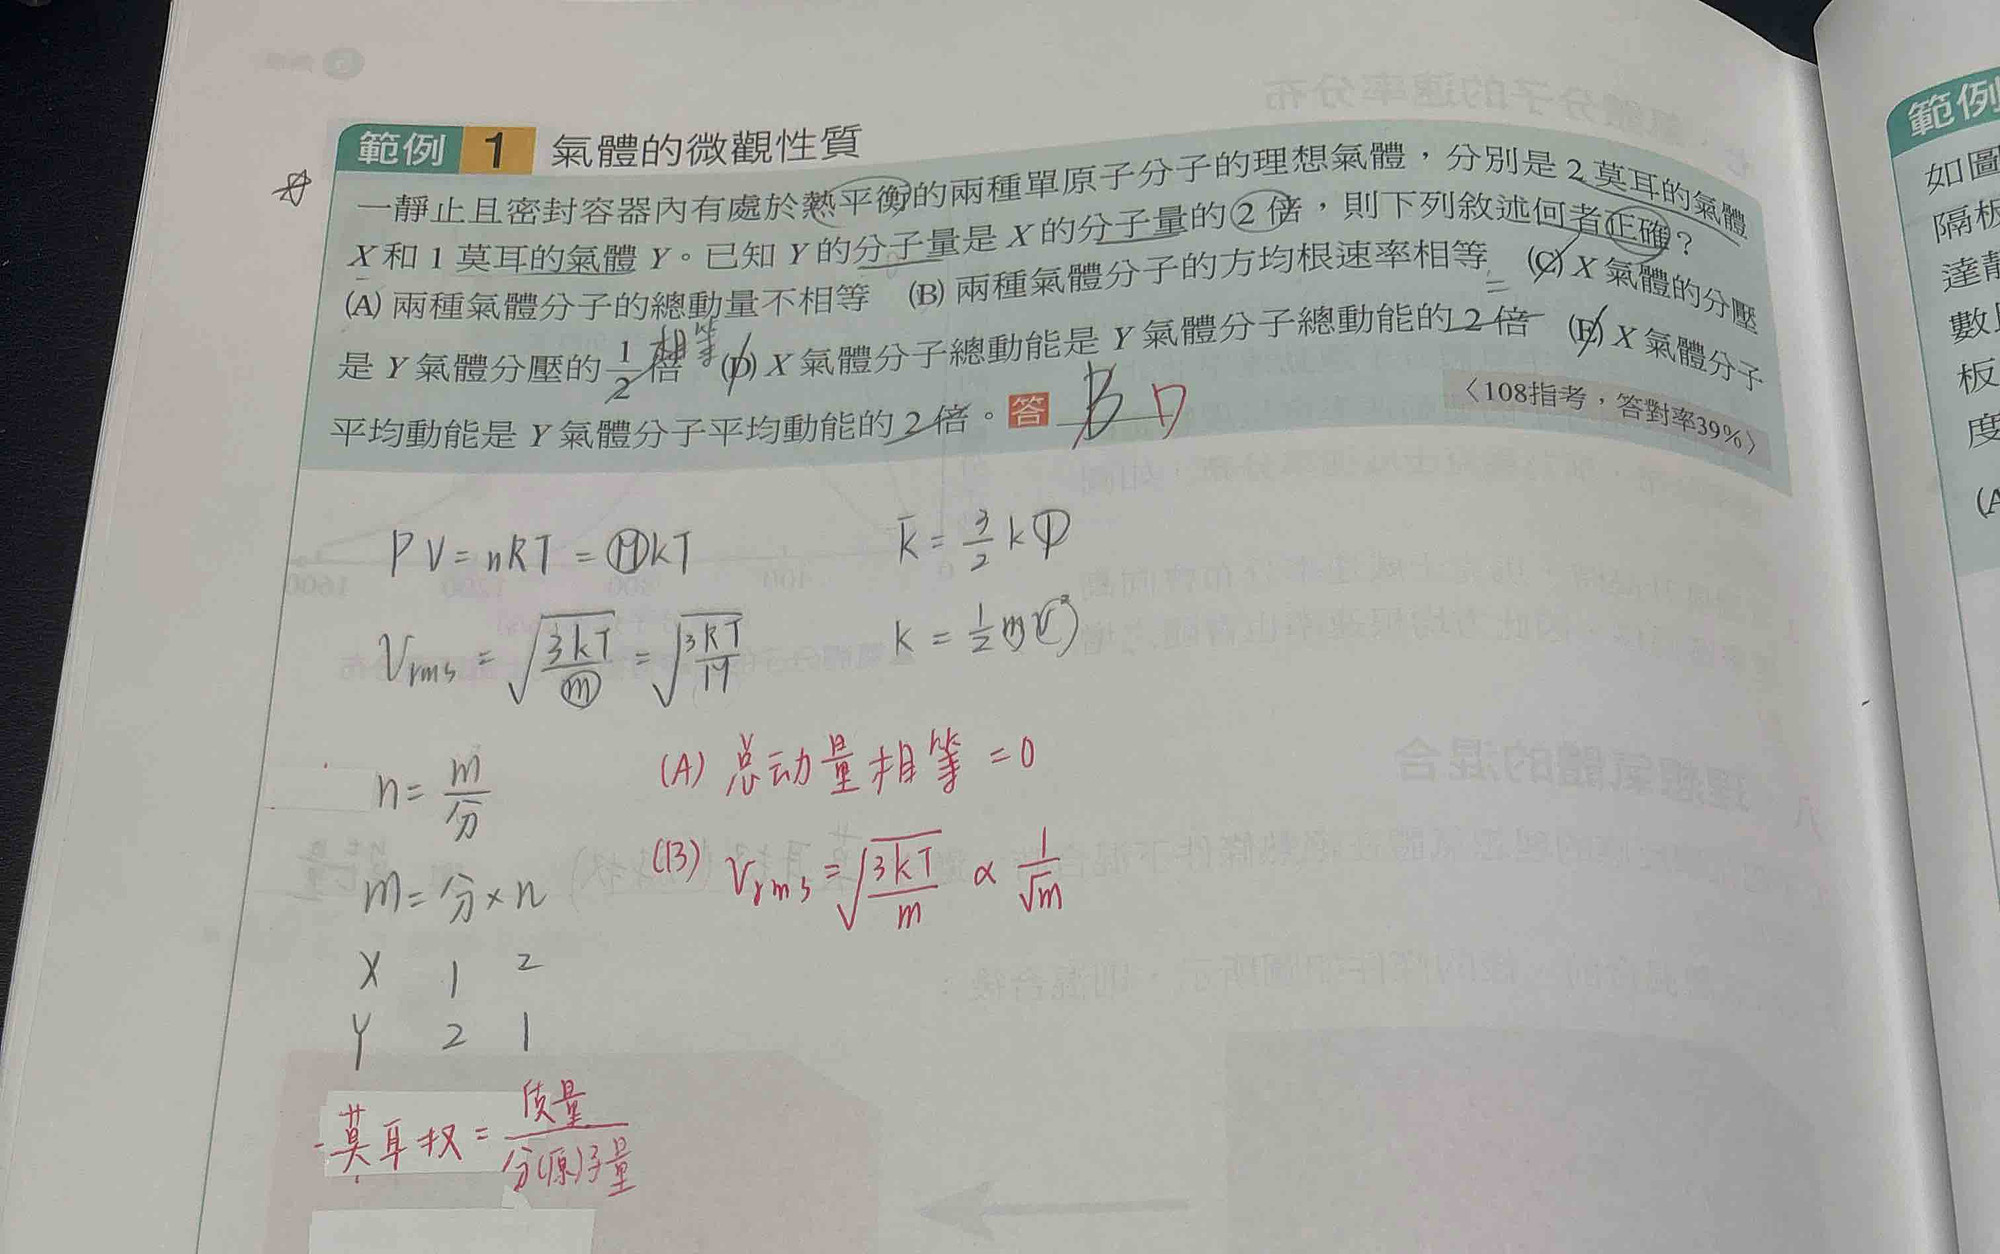 範例 1 氣體的微觀性質
一靜止且密封容器內有處於熱平衡的兩種單原子分子的理想氣體，分別是 2 莫耳的氣體
X 和 1 莫耳的氣體 Y。已知 Y 的分子量是 X 的分子量的 2 倍，則下列敘述何者正確？
(A) 兩種氣體分子的總動量不相等 (B) 兩種氣體分子的方均根速率相等 (C) X 氣體的分壓
相等
是 Y 氣體分壓的 1/2 倍 (D) X 氣體分子總動能是 Y 氣體分子總動能的 2 倍 (E) X 氣體分子
平均動能是 Y 氣體分子平均動能的 2 倍。答 B D
〈108指考，答對率39%〉
PV = nRT = NkT
k̄ = 3/2 kT
Vrms = √(3kT/m) = √(3RT/M)
k = 1/2 mv²
n = m/分
(A) 总动量相等 = 0
m = 分 × n
(B) Vrms = √(3kT/m) ∝ 1/√m
X 1 2
Y 2 1
莫耳杈 = 质量/分(原)子量
範例
如圖
隔板
達
數
板
度
(A